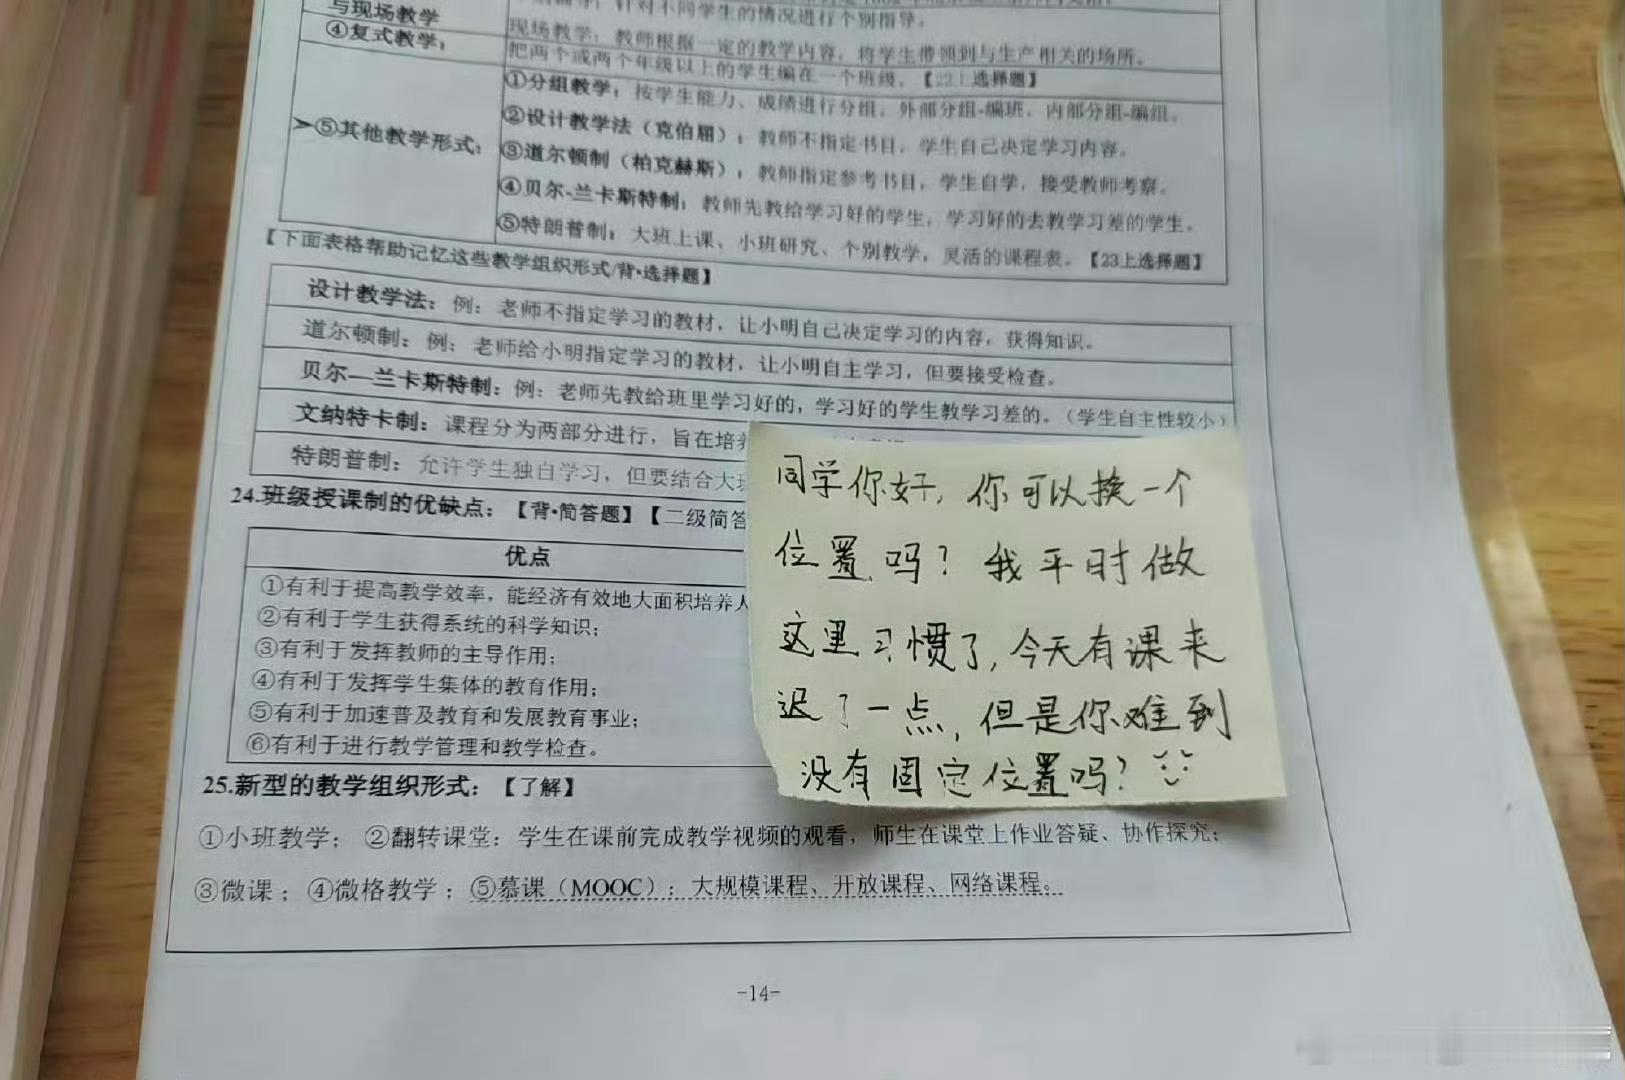 与现场教学
针对不同学生的情况进行个别指导。
现场教学：教师根据一定的教学内容，将学生带领到与生产相关的场所。
④复式教学：
把两个或两个年级以上的学生编在一个班级。【22上选择题】
➢⑤其他教学形式：
①分组教学：按学生能力、成绩进行分组。外部分组-编班，内部分组-编组。
②设计教学法（克伯屈）：教师不指定书目，学生自己决定学习内容。
③道尔顿制（柏克赫斯）：教师指定参考书目，学生自学，接受教师考察。
④贝尔-兰卡斯特制：教师先教给学习好的学生，学习好的去教学习差的学生。
⑤特朗普制：大班上课、小班研究、个别教学，灵活的课程表。【23上选择题】
【下面表格帮助记忆这些教学组织形式/背·选择题】
设计教学法：例：老师不指定学习的教材，让小明自己决定学习的内容，获得知识。
道尔顿制：例：老师给小明指定学习的教材，让小明自主学习，但要接受检查。
贝尔—兰卡斯特制：例：老师先教给班里学习好的，学习好的学生教学习差的。（学生自主性较小）
文纳特卡制：课程分为两部分进行，旨在培养
特朗普制：允许学生独自学习，但要结合大班
24.班级授课制的优缺点：【背·简答题】【二级简答
优点
①有利于提高教学效率，能经济有效地大面积培养人
②有利于学生获得系统的科学知识；
③有利于发挥教师的主导作用；
④有利于发挥学生集体的教育作用；
⑤有利于加速普及教育和发展教育事业；
⑥有利于进行教学管理和教学检查。
同学你好，你可以换一个
位置吗？我平时做
这里习惯了，今天有课来
迟了一点，但是你难到
没有固定位置吗？
25.新型的教学组织形式：【了解】
①小班教学；②翻转课堂：学生在课前完成教学视频的观看，师生在课堂上作业答疑、协作探究；
③微课；④微格教学；⑤慕课（MOOC）：大规模课程、开放课程、网络课程。
-14-